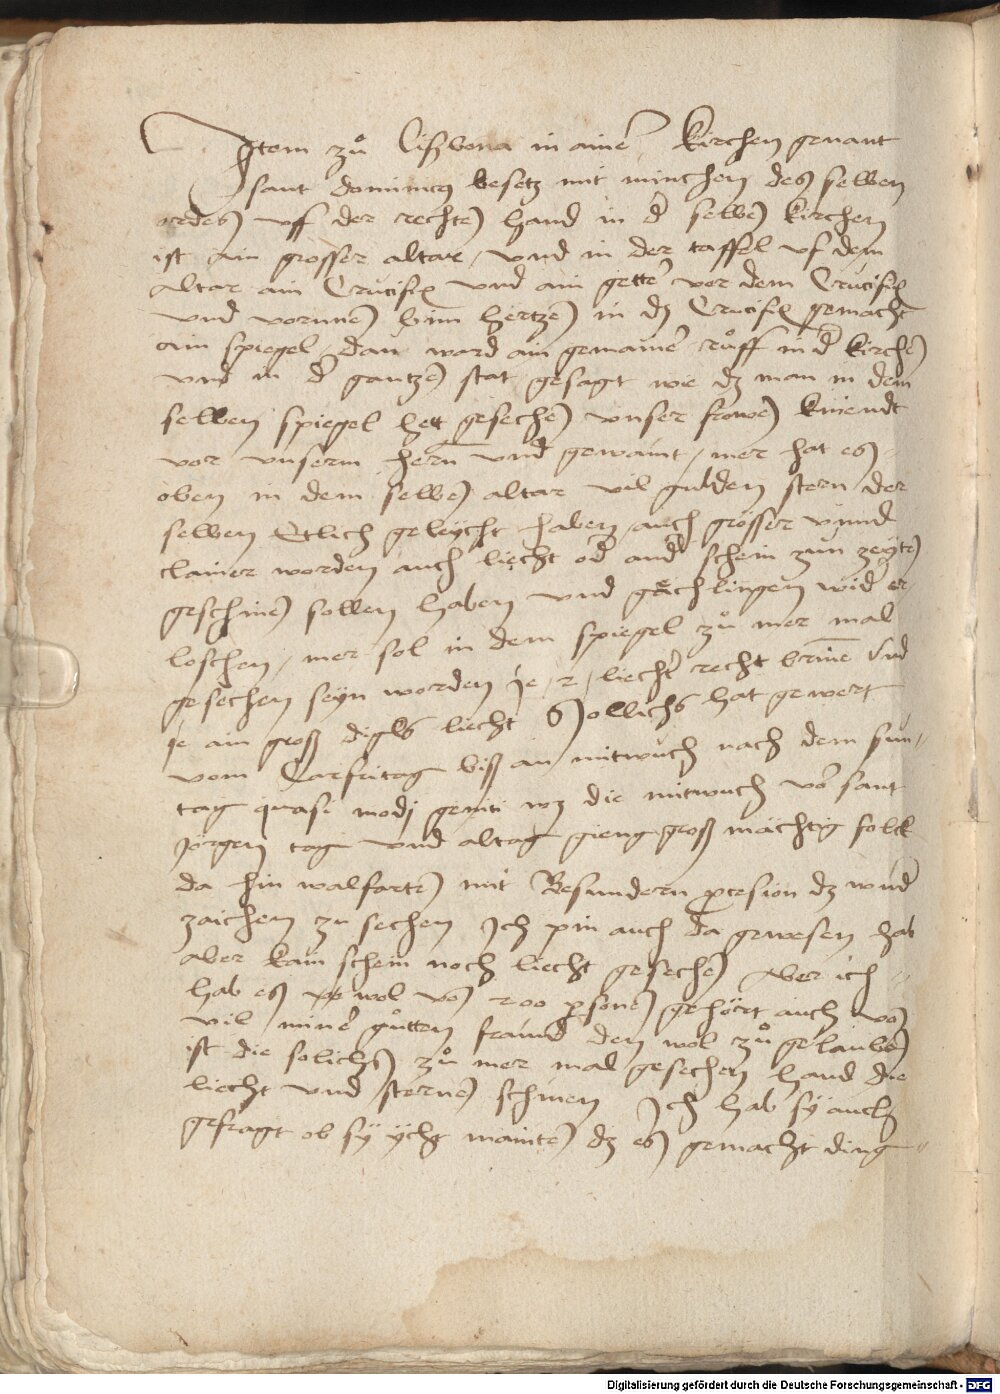 Item zů Lißbona in ainer kirchen genant
sant dominicus besetz mit minchen des selben
ordes uff der rechten hand in der selben kirchen
ist ain grosser altar / vnd in der taffel vf dem
altar ain Crucifix vnd ain getter vor dem Crucifix
vnd vornnen him hertzen in dz Crucifix gemacht
ain spiegel / dan ward ain gemainer růff in der kirchen
vnd in der gantzen stat gesagt wie dz man in dem
selben spiegel hett gesechen vnser frowen kniendt
vor vnserm hern vnd gewaint / mer hat es
oben in dem selben altar vil gulden stern der
selben Etlich geleycht haben auch grösser vnnd
clainer worden auch liecht od ander schein zun zeyten
geschinen sollen haben vnd gächlingen wider er
loschen / mer sol in dem spiegel zů mer mal
gesechen seyn worden je / 2 / liechter recht brinen vnd
je ain groß digls liecht Sollichs hat gewert
vom Carfritag biß an mitwuch nach dem sun
tag quasi modj geniti wz die mitwuch vor sant
Jorgen tag vnd altag gieng groß mächtig folck
da hin walfarten mit Besundern procesion dz wunder
zaichen zu sechen Ich pin auch da gewesen hab
aber kain schein noch liecht gesechen Aber ich
hab es wol von 200 personen gehört auch von
vil miner gůtten fraind den wol zů gelauben
ist die solichs zů mer mal gesechen hand die
liecht vnd sternen schinen Ich hab sÿ auch
gefragt ob sÿ ÿcht mainten dz es gemacht ding
Digitalisierung gefördert durch die Deutsche Forschungsgemeinschaft - DFG